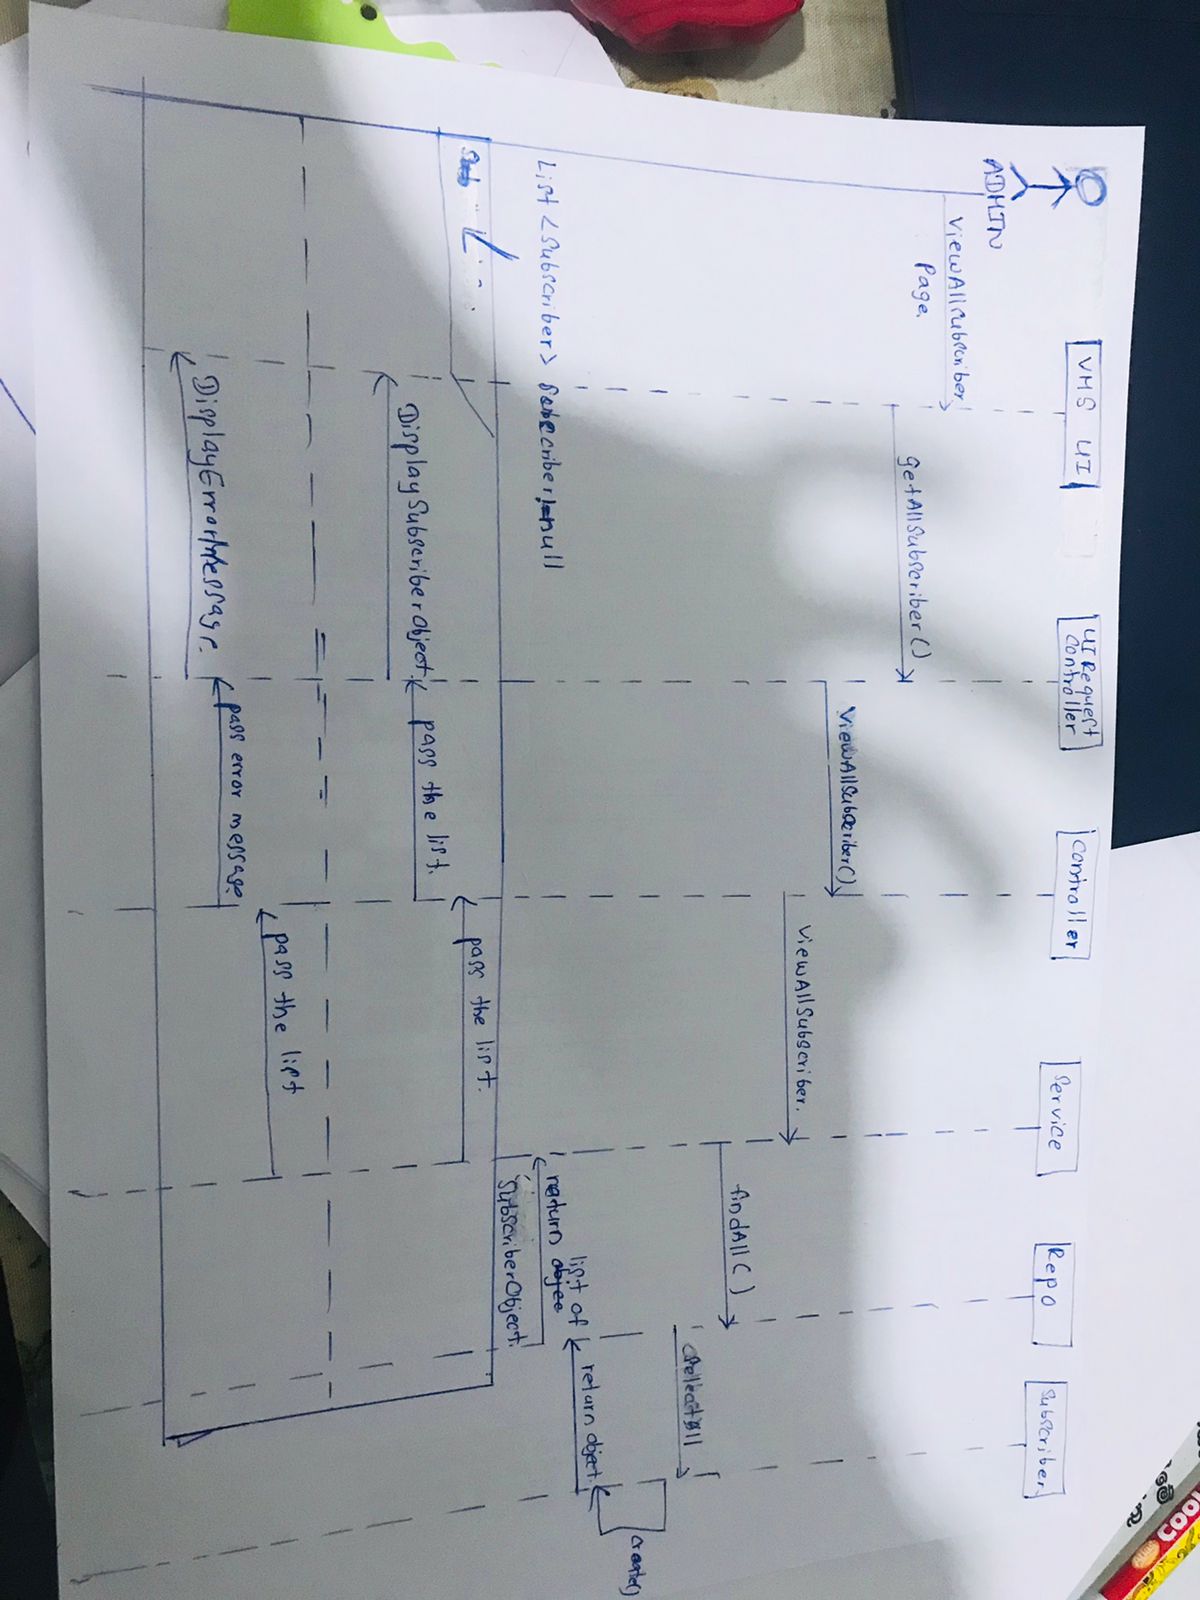 ADMIN
VMS UI
UI Request
Controller
Controller
Service
Repo
Subscriber
ViewAllSubscriber
Page
getAllSubscriber()
ViewAllSubscriber()
ViewAllSubscriber.
findAll()
create()
return object.
list of
return
SubscriberObject.
List <Subscriber>
null
pass the list.
pass the list.
DisplaySubscriberObject.
pass the list
pass error message.
DisplayErrorMessage.
COO